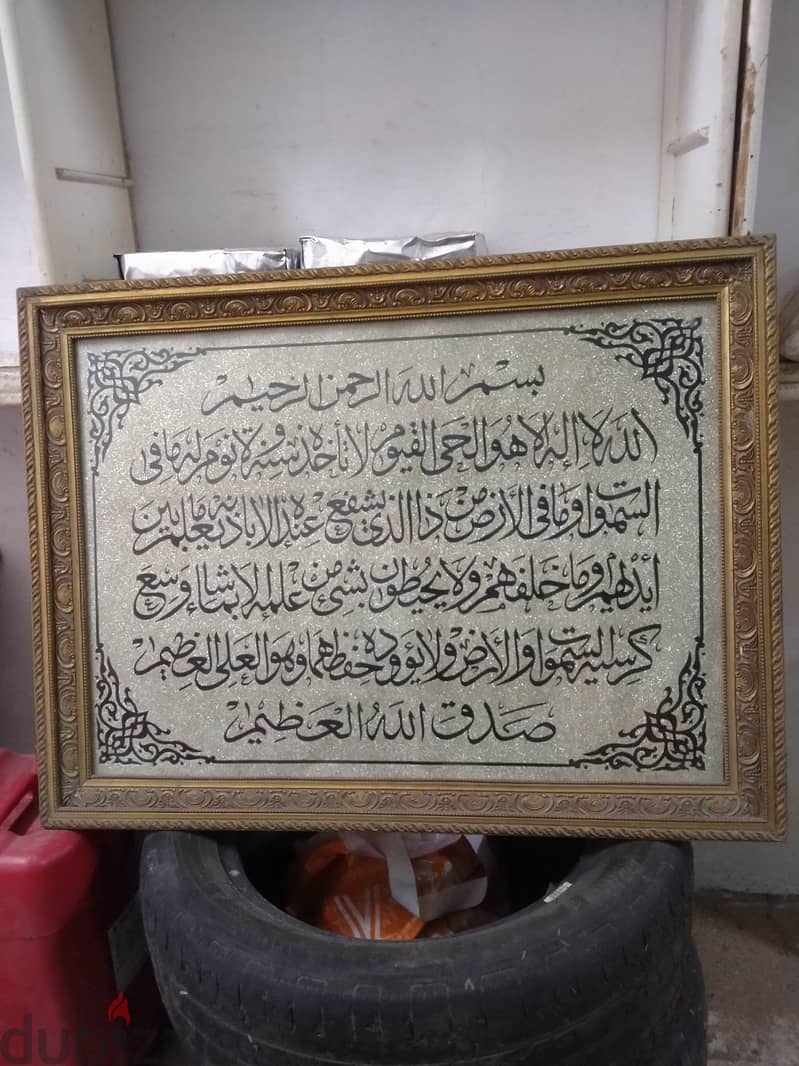 بسم الله الرحمن الرحيم
الله لا إله إلا هو الحي القيوم لا تأخذه سنة ولا نوم له ما في
السموات وما في الأرض من ذا الذي يشفع عنده إلا باذنه يعلم ما بين
أيديهم وما خلفهم ولا يحيطون بشيء من علمه إلا بما شاء وسع
كرسيه السموات والأرض ولا يؤوده حفظهما وهو العلي العظيم
صدق الله العظيم
dubizzle